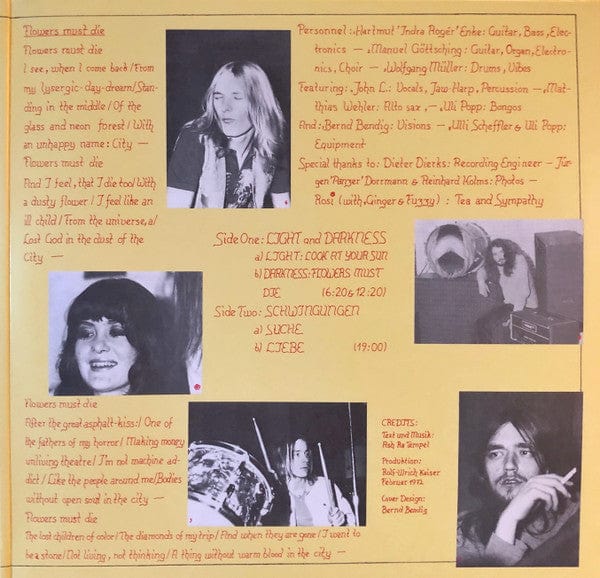 Flowers must die
Flowers must die
I see, when I come back/From
my lysergic-day-dream/Stan-
ding in the middle/Of the
glass and neon forest/With
an unhappy name: City —
Flowers must die
And I feel, that I die too/With
a dusty flower / I feel like an
ill child/From the universe, a/
Lost God in the dust of the
City —
Personnel: Hartmut 'Indra Royér' Enke: Guitar, Bass, Elec-
tronics — Manuel Göttsching: Guitar, Organ, Electro-
nics, Choir — Wolfgang Müller: Drums, Vibes
Featuring: John L.: Vocals, Jaw-Harp, Percussion — Mat-
thias Wehler: Alto sax, — Uli Popp: Bongos
And: Bernd Bendig: Visions — Ulli Scheffler & Uli Popp:
Equipment
Special thanks to: Dieter Dierks: Recording Engineer — Jür-
gen 'Panzer' Dorrmann & Reinhard Kolms: Photos —
Rosi (with Ginger & Fuzzy) : Tea and Sympathy
Side One: LIGHT and DARKNESS
a) LIGHT: LOOK AT YOUR SUN
b) DARKNESS: FLOWERS MUST
DIE (6:20 & 12:20)
Side Two: SCHWINGUNGEN
a) SUCHE
b) LIEBE (19:00)
Flowers must die
After the great asphalt-kiss:/ One of
the fathers of my horror/ Making money
unliving theatre/ I'm not machine ad-
dict / Like the people around me/Bodies
without open soul in the city —
Flowers must die
The lost children of color/ The diamonds of my trip/ And when they are gone/ I want to
be a stone/Not living, not thinking/ A thing without warm blood in the city —
CREDITS:
Text und Musik:
Ash Ra Tempel
Produktion:
Rolf-Ulrich Kaiser
Februar 1972
Cover Design:
Bernd Bendig